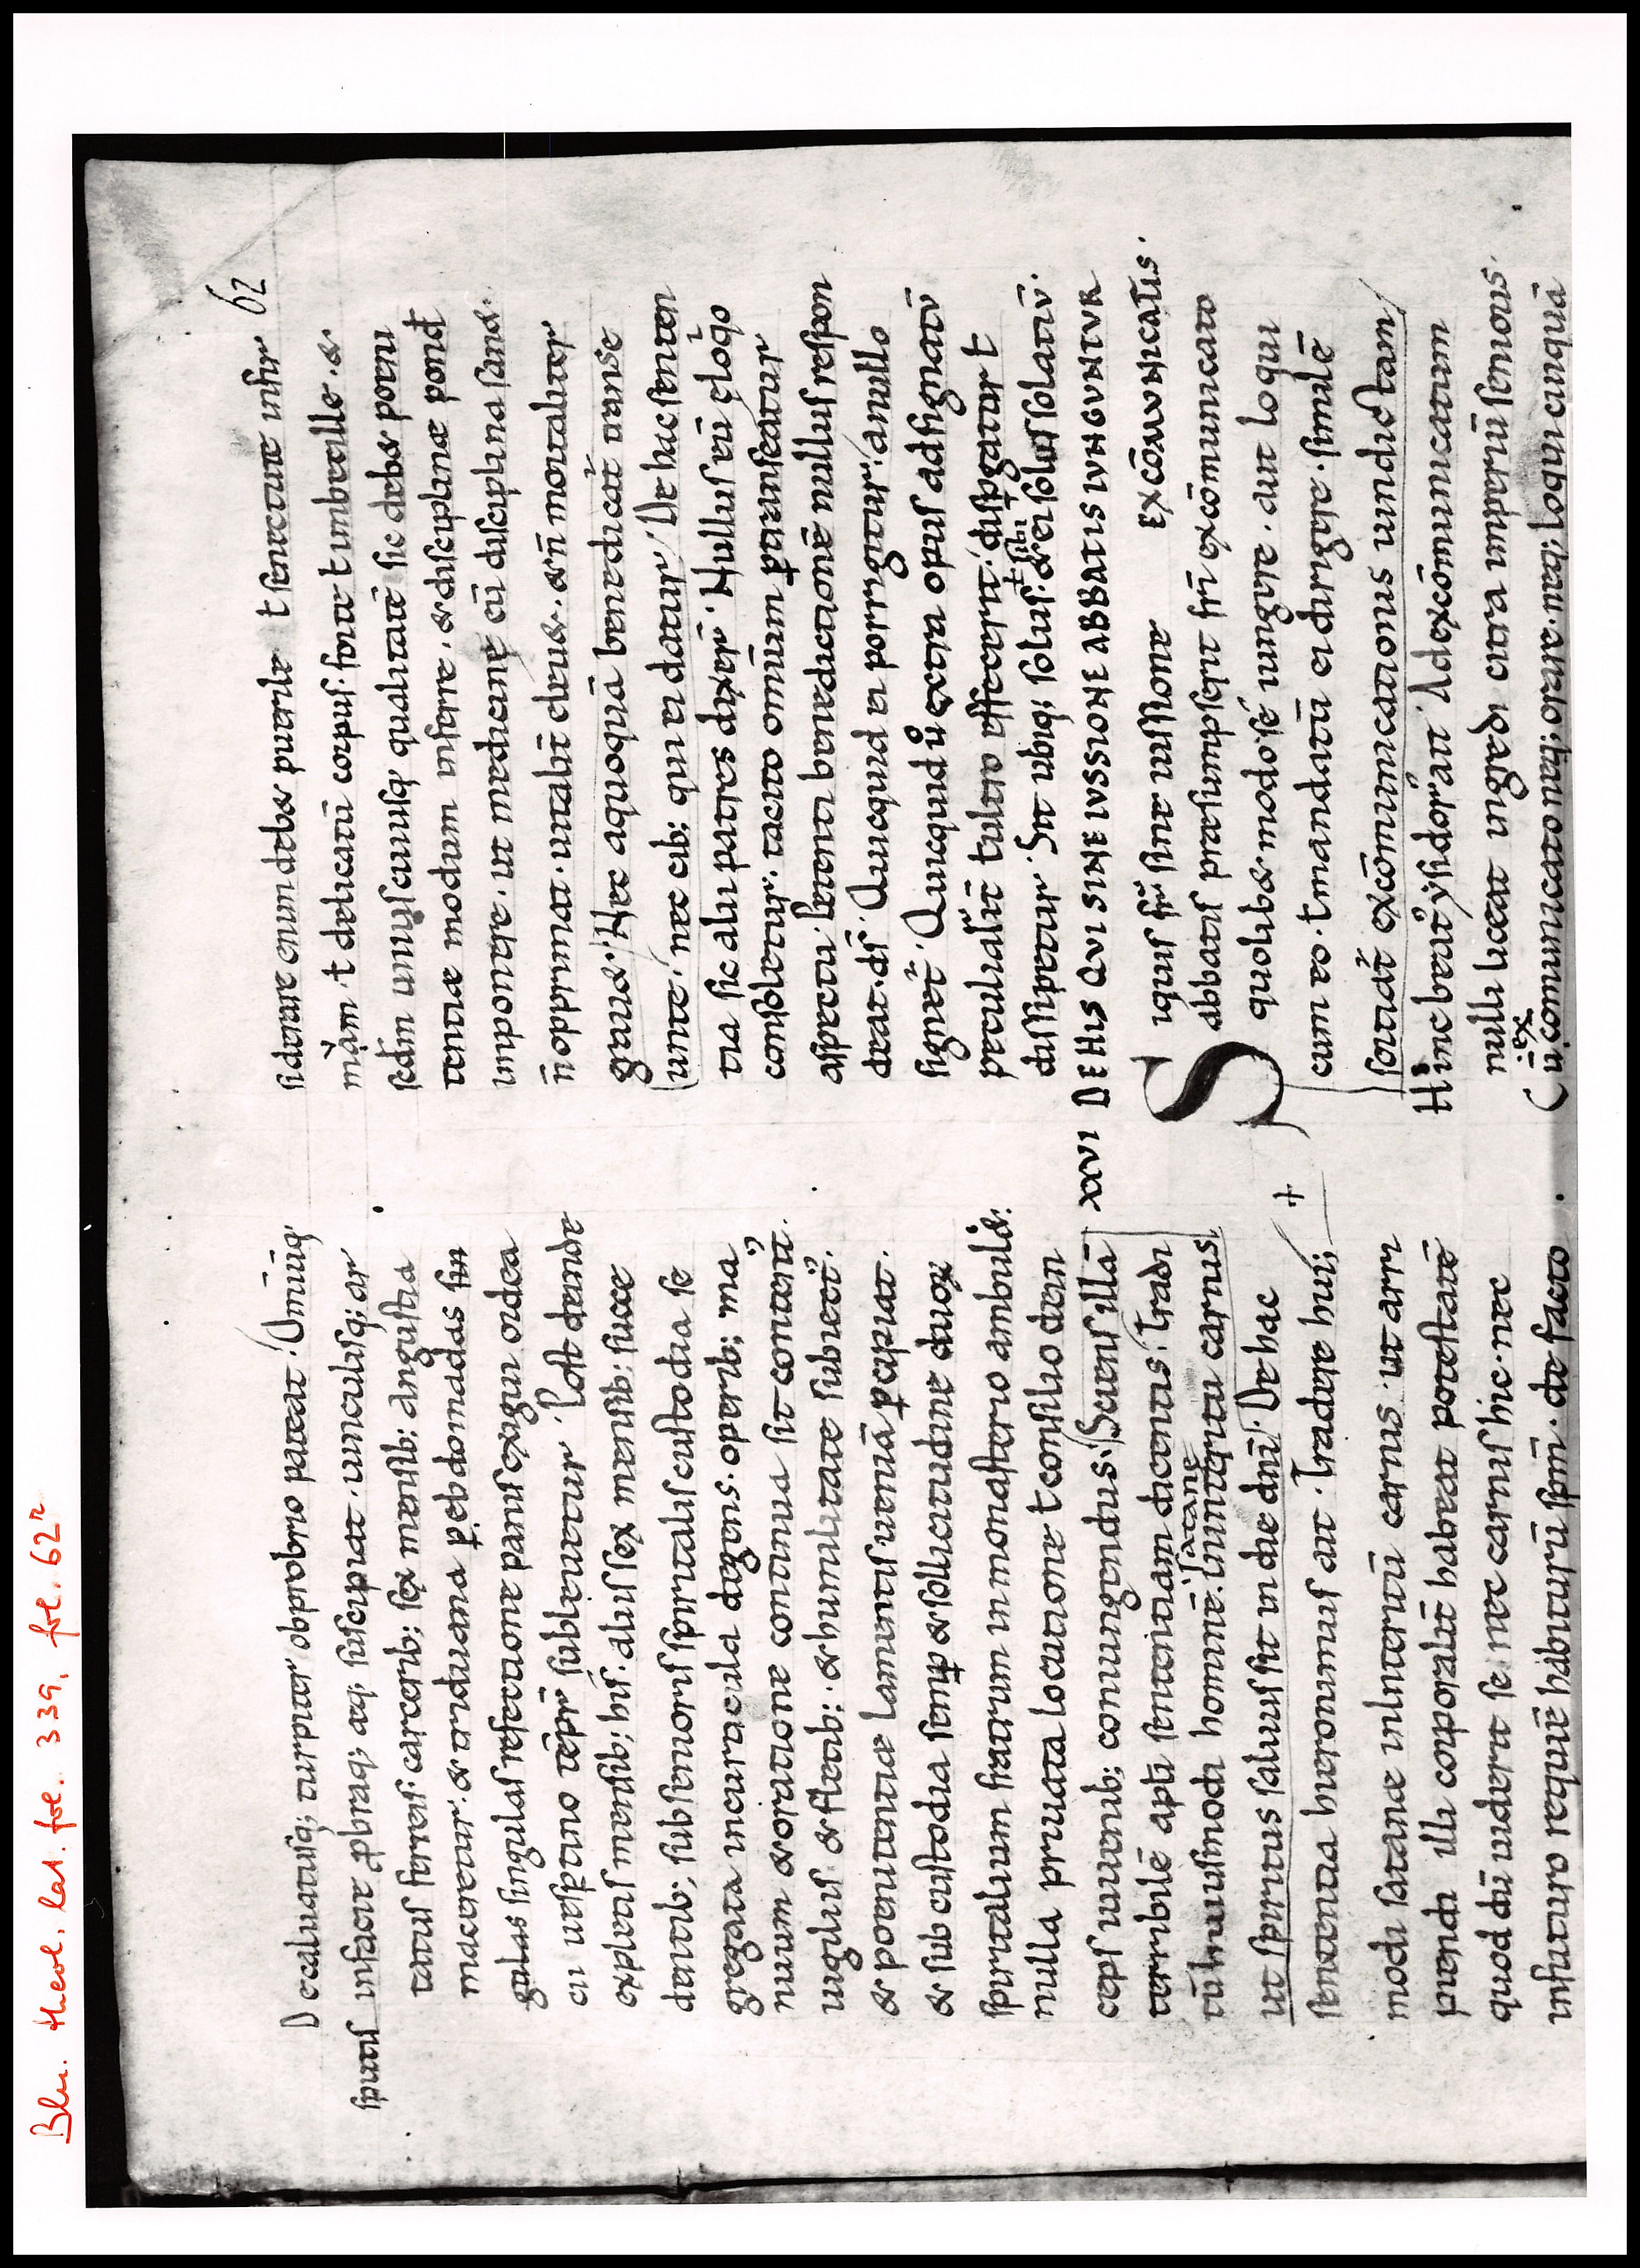 Bln. theol. lat. fol. 339, fol. 62r
62
Decaluatusq; turpiter obprobrio pateat. Omniūq;
sputis in facie ꝓbraq; aeq; suscipiat. uinculisq; ar
tatus ferreis. carcerib; sex mensib; angustia
maceretur. & triduana ꝑ ebdomadas sin
gulas singulas refectione panis exigui ordea
cii uesꝑtino tēpr̄ subleuetur. Post deinde
expletis mensib; his. aliis sex mensib; succe
dentib; sub senioris spiritalis custodia se
gregata in curticula degens. operib; ma
nuum & oratione continua sit content'.
uigiliis & fletib; & humilitate subiect'.
& poenitentiæ lamentis ueniā ꝑcipiat.
& sub custodia semꝑ & sollicitudine duoꝝ
spiritalium fratrum in monasterio ambul&.
nulla priuata locutione ł consilio dein
ceps iuuenib; coniungendus. Sciens illā
terribilē apl̄i sententiam dicentis. Tradi
tū huiusmodi hominē satane in interitu carnis.
ut spiritus saluus sit in die dnī. De hac
sententia hieronimus ait. Tradere hui;
modi satanæ in interitū carnis. ut arri
piendi illi corporalit̄ habeat potestatē
quod dū uiderit se nec carnis hic. nec
in futuro requiē habiturū spm̄. de facto
siderare enim deb& puerile ł senectute infir
mā̆m. ł delicatū corpus. forte ł inbecille. &
scd̄m uniuscuiusq; qualitatē sic deb& poeni
tentiæ modum inferre. & disciplinæ pond'
inponere. ut medicinę cū disciplina san&.
n̄ opprimat. uitalit̄ eleu&. & n̄ mortaliter
grau&. Nec a quoquā benedicat' transe
unte. nec cib; qui ei datur. De hac senten
tia sic alii patres dixer̄. Nullus eū eloq̊o
consoletur. tacito omīum ꝑtranseatur
aspectu. Petenti benedictionē nullus respon
deat. d̄s. Quicquid ei porrigitur. a nullo
signet'. Quicquid ů extra opus adsignatū
peculialit̄ ł ultro effecerit. dispgatur ł
dissipetur. Sit ubiq; solus. ł sibi & ei solus solatiū.
XXVI DE HIS QVI SINE IVSSIONE ABBATIS IVNGVNTVR
EXCŌMVNICATIS.
Siquis fr̄ sine iussione
abbatis præsumpserit fr̄i excōmunicato
quolib& modo se iungere. aut loqui
cum eo. ł mandatū ei dirigere. similē
sortiat' excōmunicationis uindictam
Hinc beat' ysidor' ait. Ad excōmunicatum
nulli liceat ingredi citra imperiū senioris.
Cū ex comunicato neq; orare. neq; loqui cuiquā